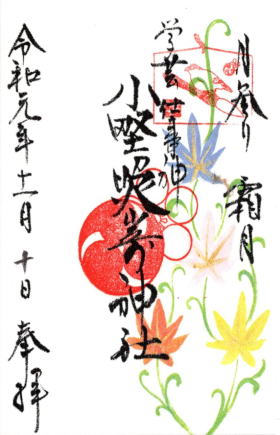 月参り
霜月
学芸仕事神
小野照崎神社
令和元年十一月十日
奉拝